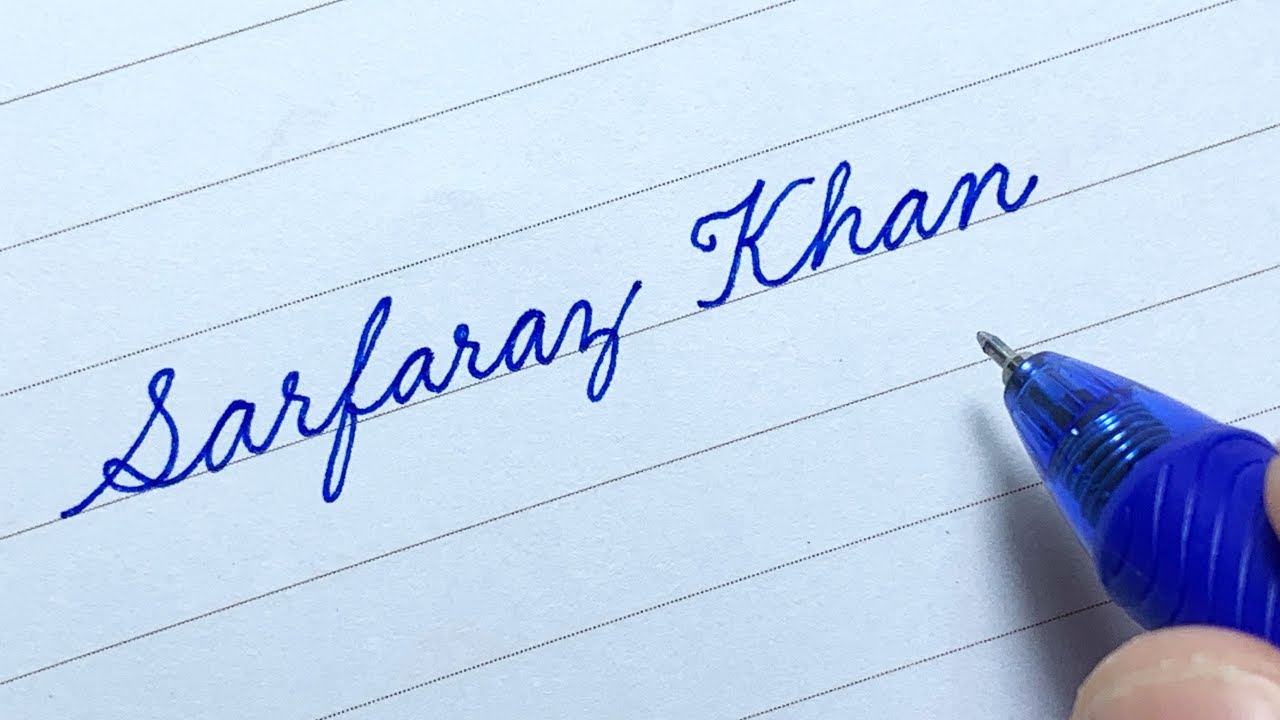 Sarfaraz Khan